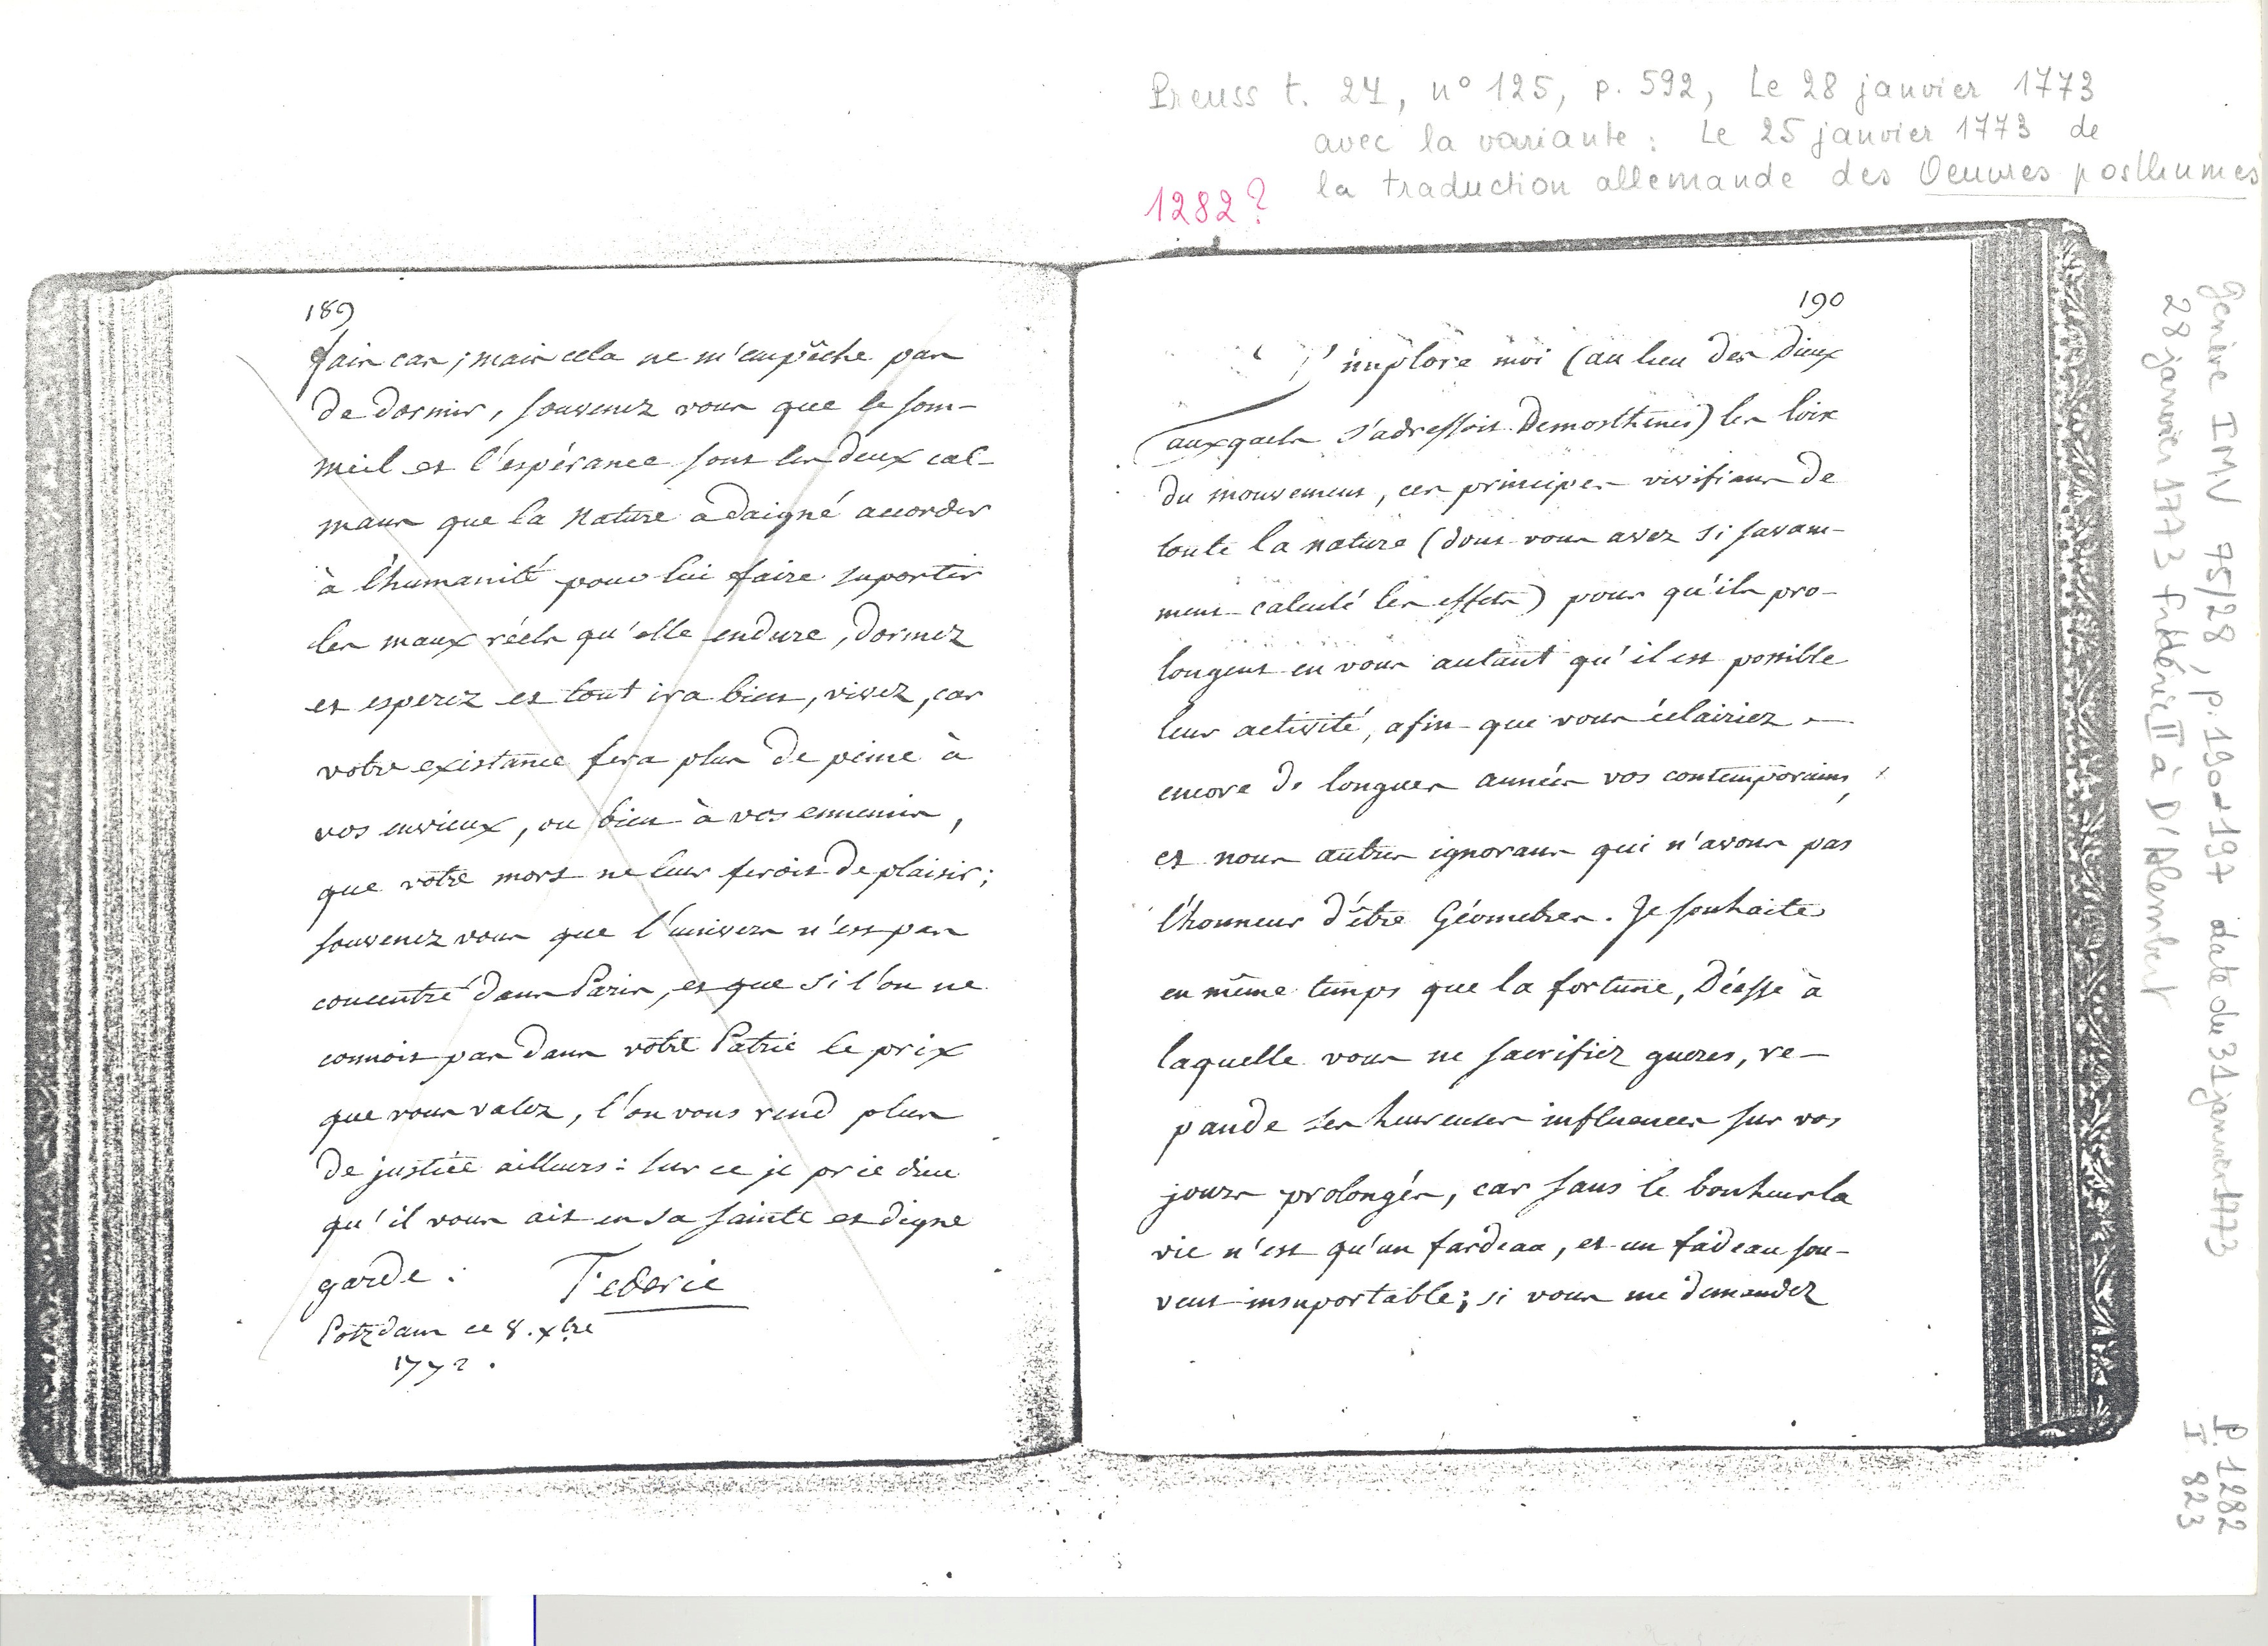 Preuss t. 24, n° 125, p. 592, Le 28 janvier 1773
avec la variante : Le 25 janvier 1773 de
la traduction allemande des Oeuvres posthumes
1282?
189
fais cas ; mais cela ne m'empêche pas
de dormir, souvenez vous que le som-
meil et l'espérance sont les deux cal-
mans que la Nature a daigné accorder
à l'humanité pour lui faire suporter
les maux réels qu'elle endure, dormez
et esperez et tout ira bien, vivez, car
votre existance fera plus de peine à
vos envieux, ou bien à vos ennemis,
que votre mort ne leur feroit de plaisir;
souvenez vous que l'univers n'est pas
concentré dans Paris, et que si l'on ne
connoit pas dans votre Patrie le prix
que vous valez, l'on vous rend plus
de justice ailleurs : sur ce je prie dieu
qu'il vous ait en sa sainte et digne
garde : Federic
Potzdam ce 8. xbre
1772.
190
J'implore moi (au lieu des Dieux
auxquels s'adressoit Demosthenes) les loix
du mouvement, ces principes vivifians de
toute la nature (dont vous avez si savam-
ment calculé les effets) pour qu'ils pro-
longent en vous autant qu'il est possible
leur activité, afin que vous éclairiez
encore de longues années vos contemporains,
et nous autres ignorans qui n'avons pas
l'honneur d'être Géometres. Je souhaite
en même temps que la fortune, Déesse à
laquelle vous ne sacrifiez gueres, re-
pande ses heureuses influences sur vos
jours prolongés, car sans le bonheur la
vie n'est qu'un fardeau, et un fadeau sou-
vent insuportable; si vous me demandez
Genève IMV 75/28, p. 190-197 daté du 31 janvier 1773
28 janvier 1773 Frédéric II à D'Alembert
P. 1282
I 823